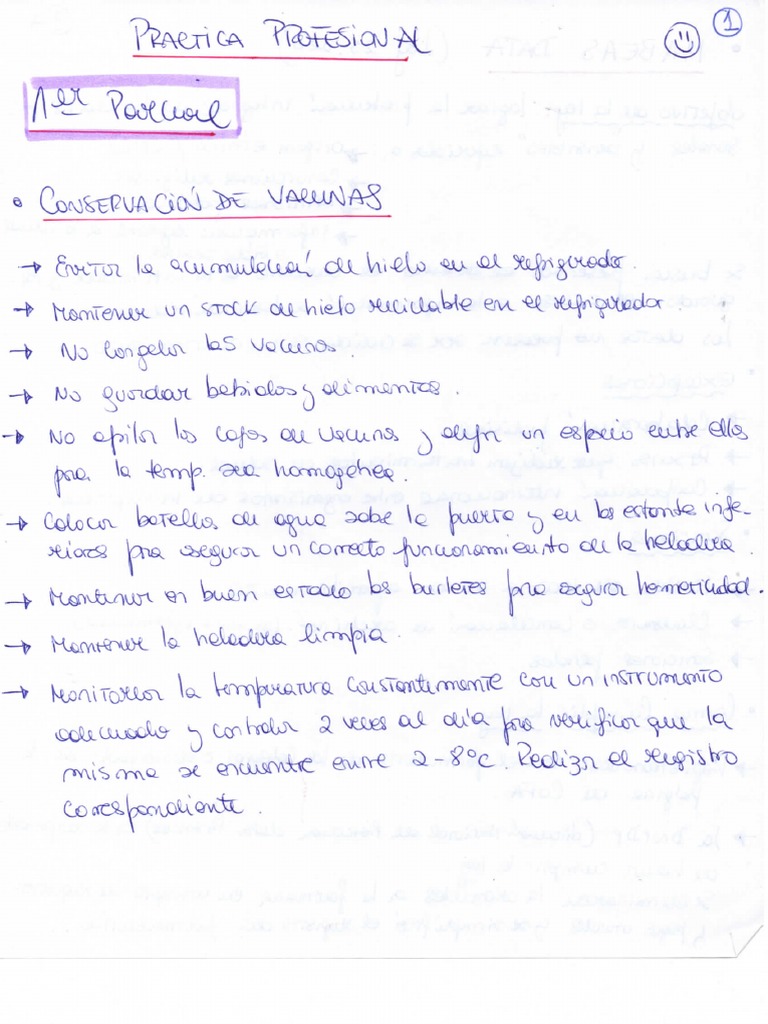 1
PRACTICA PROFESIONAL
1er Parcial
• CONSERVACIÓN DE VACUNAS
→ Evitar la acumulación de hielo en el refrigerador.
→ Mantener un STOCK de hielo reciclable en el refrigerador.
→ No congelar las vacunas.
→ No guardar bebidas y alimentos.
→ No apilar las cajas de vacunas y dejar un espacio entre ellas
para la temp. sea homogénea.
→ Colocar botellas de agua sobre la puerta y en los estantes infe-
riores para asegurar un correcto funcionamiento de la heladera.
→ Mantener en buen estado los burletes para asegurar hermeticidad.
→ Mantener la heladera limpia.
→ Monitorear la temperatura constantemente con un instrumento
adecuado y controlar 2 veces al día para verificar que la
misma se encuentre entre 2-8ºc. Realizar el registro
correspondiente.